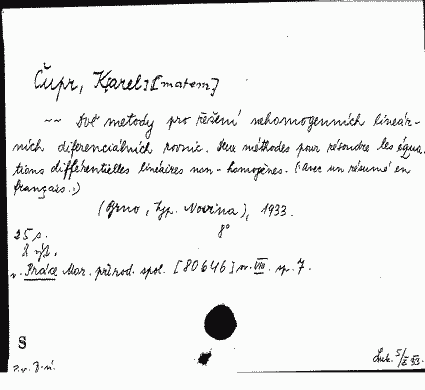 Čupr, Karel, [matem]
~~ Dvě metody pro řěšení nehomogenních lineár-
ních diferenciálních rovnic. Deux méthodes pour résondre les équa-
tions différentielles linéaires non-homogènes. (:avec un résumé en
français.:)
(Brno, typ. Novina), 1933.
8°
25 s.
v. Práce Mor. přírod. spol. [80646] sv. VIII. sp. 7.
S